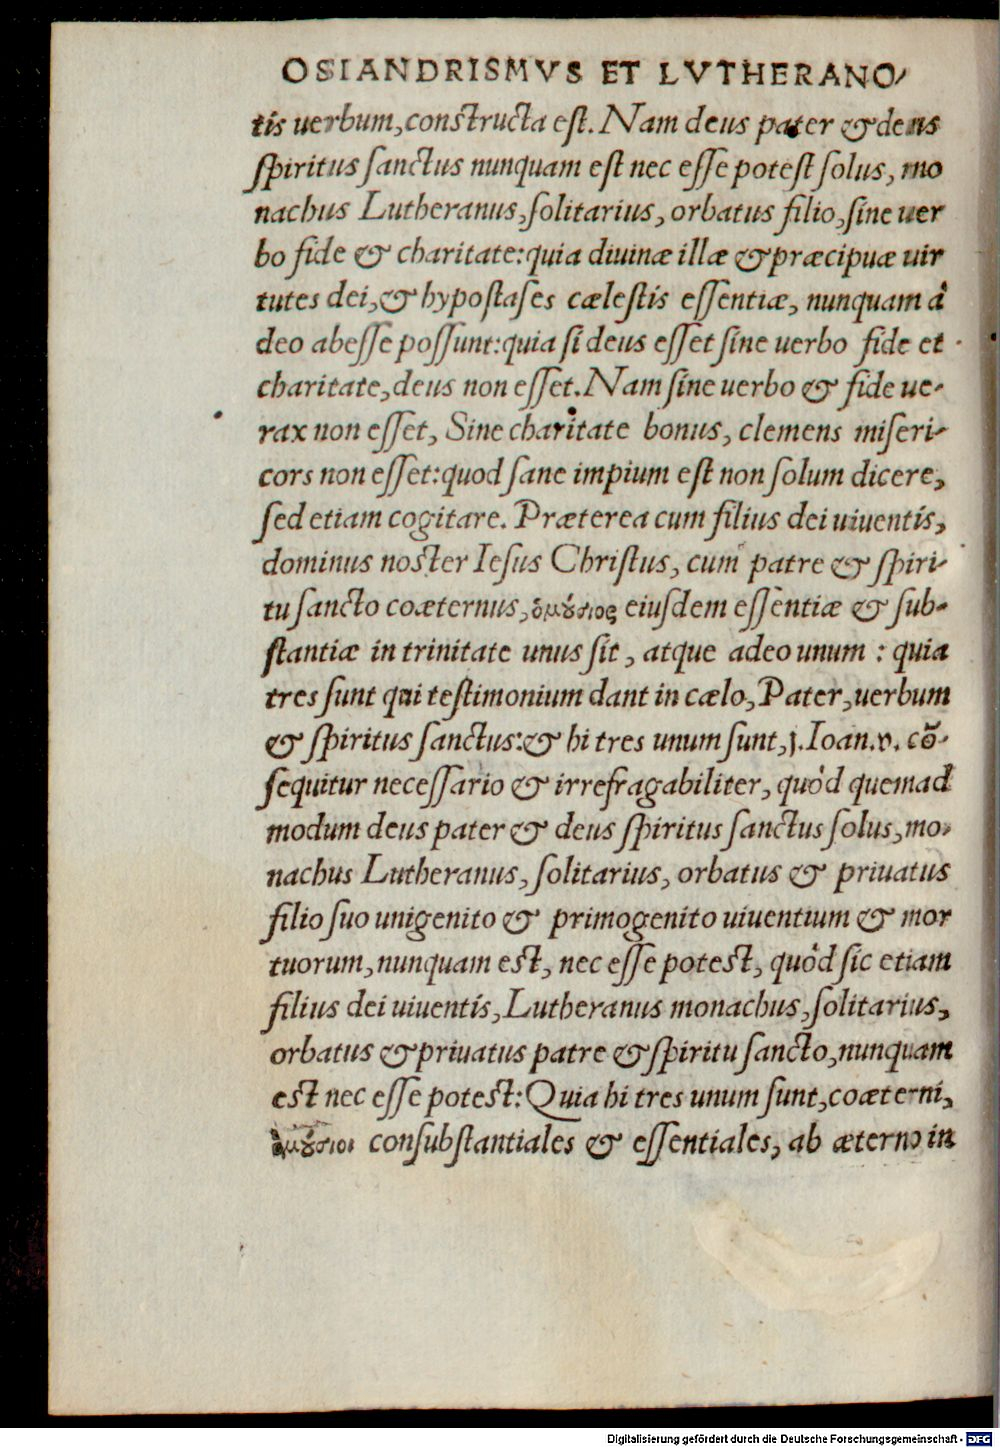 OSIANDRISMVS ET LVTHERANO-
tis uerbum, constructa est. Nam deus pater & deus
spiritus sanctus nunquam est nec esse potest solus, mo
nachus Lutheranus, solitarius, orbatus filio, sine uer
bo fide & charitate: quia diuinæ illæ & præcipuæ uir
tutes dei, & hypostases cælestis essentiæ, nunquam à
deo abesse possunt: quia si deus esset sine uerbo fide et
charitate, deus non esset. Nam sine uerbo & fide ue-
rax non esset, Sine charitate bonus, clemens miseri-
cors non esset: quod sane impium est non solum dicere,
sed etiam cogitare. Præterea cum filius dei uiuentis,
dominus noster Iesus Christus, cum patre & spiri-
tu sancto coæternus, ὁμούσιος eiusdem essentiæ & sub-
stantiæ in trinitate unus sit, atque adeo unum : quia
tres sunt qui testimonium dant in cælo, Pater, uerbum
& spiritus sanctus: & hi tres unum sunt, j. Ioan. v. cō-
sequitur necessario & irrefragabiliter, quòd quemad
modum deus pater & deus spiritus sanctus solus, mo-
nachus Lutheranus, solitarius, orbatus & priuatus
filio suo unigenito & primogenito uiuentium & mor
tuorum, nunquam est, nec esse potest, quòd sic etiam
filius dei uiuentis, Lutheranus monachus, solitarius,
orbatus & priuatus patre & spiritu sancto, nunquam
est nec esse potest: Quia hi tres unum sunt, coæterni,
ὁμούσιοι consubstantiales & essentiales, ab æterno in
Digitalisierung gefördert durch die Deutsche Forschungsgemeinschaft - DFG